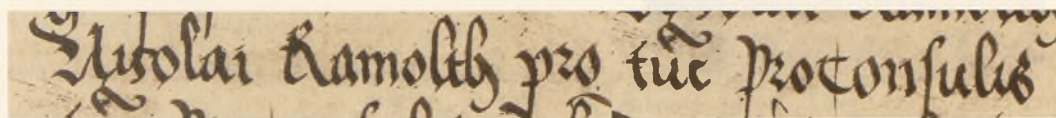 Nicolai Ramolth pro tūc proconsulis